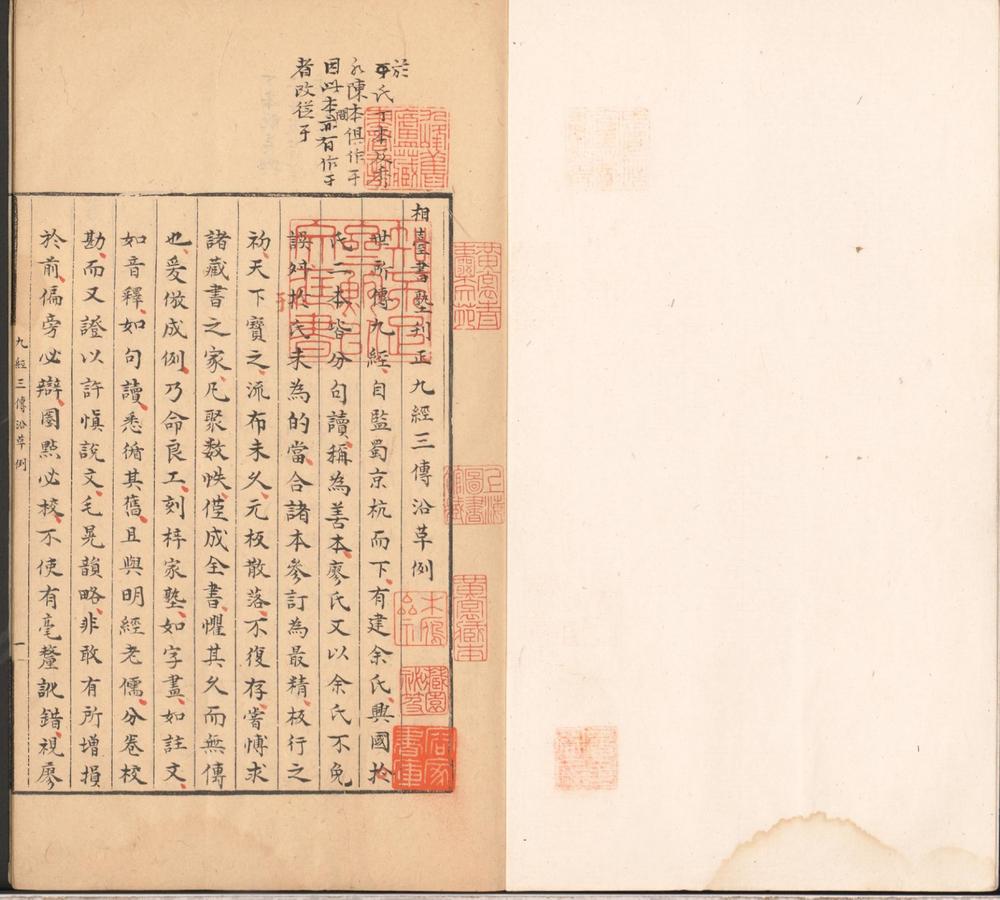 於
氏
陳本俱作于
因此本間亦有作于
者改從于
相臺書塾刊正九經三傳沿革例
世所傳九經自監蜀京杭而下有建余氏興國於
氏二本皆分句讀稱為善本廖氏又以余氏不免
誤舛於氏未為的當合諸本參訂為最精板行之
初天下寶之流布未久元板散落不復存嘗博求
諸藏書之家凡聚數帙僅成全書懼其久而無傳
也爰倣成例乃命良工刻梓家塾如字畫如註文
如音釋如句讀悉循其舊且與明經老儒分卷校
勘而又證以許慎說文毛晃韻略非敢有所增損
於前偏旁必辯圈點必校不使有毫釐訛錯視廖
九經三傳沿革例
一
上海圖書館藏